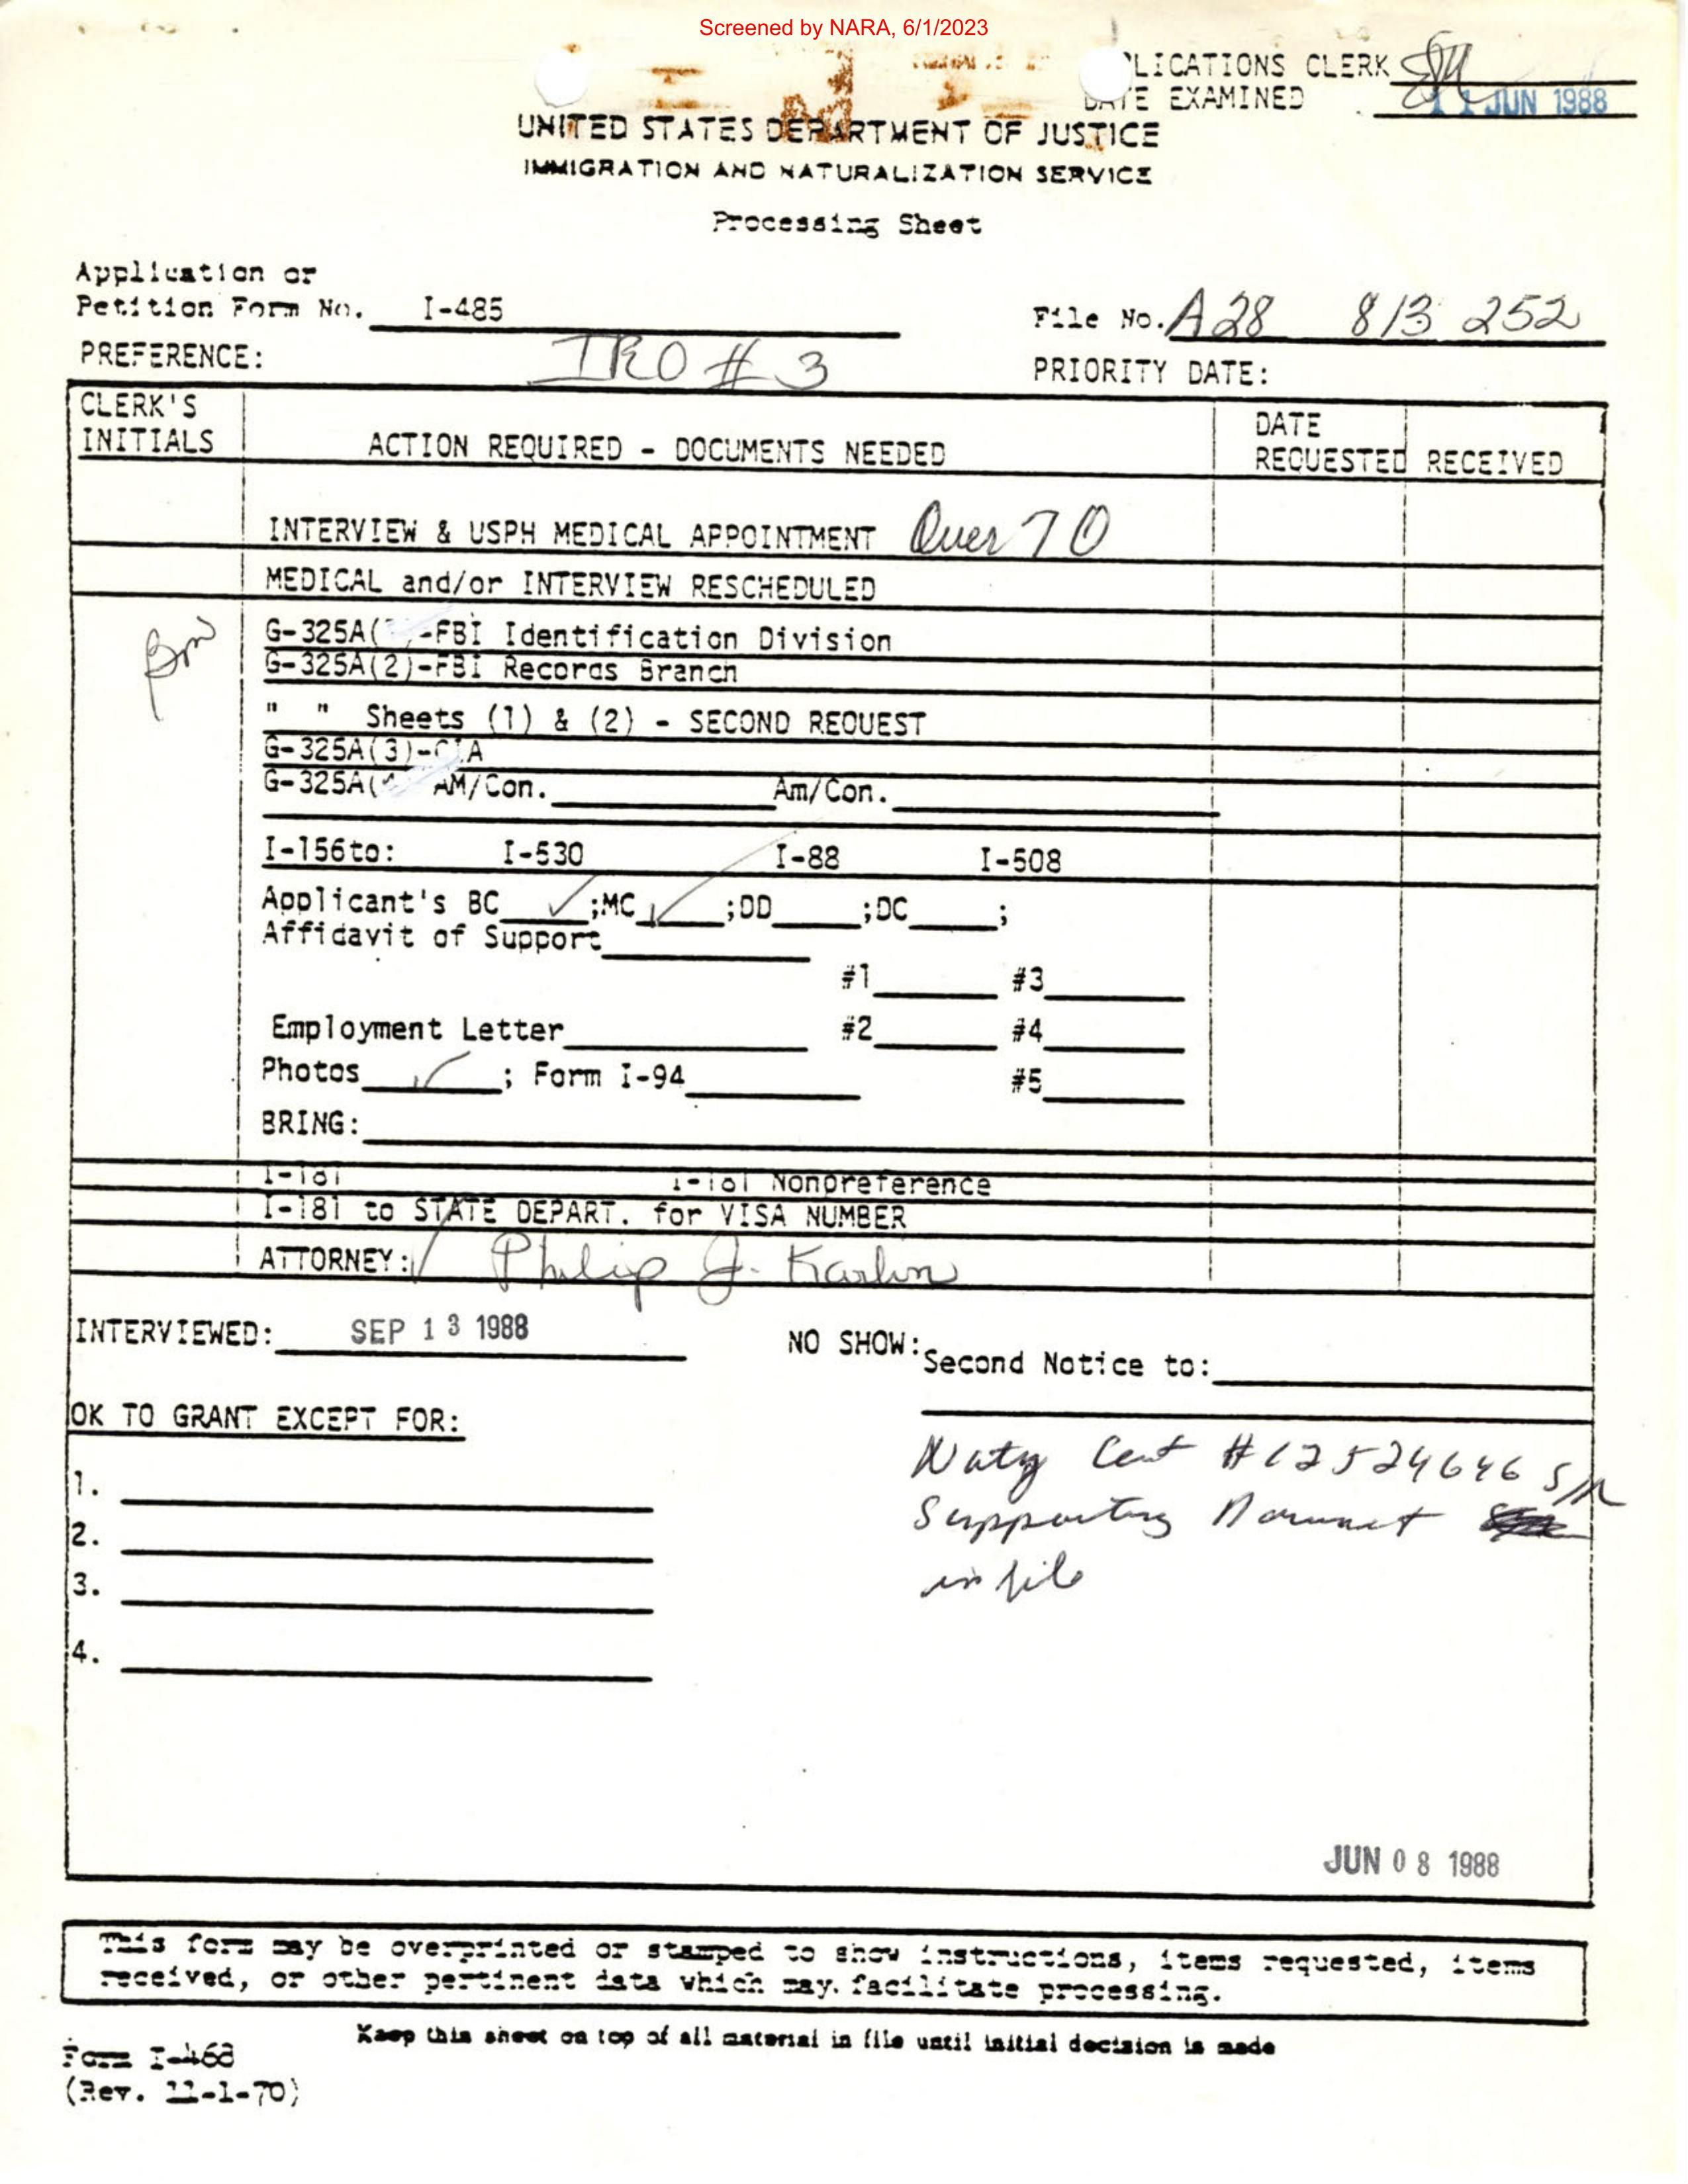 Screened by NARA, 6/1/2023
LICATIONS CLERK
DATE EXAMINED 11 JUN 1988
UNITED STATES DEPARTMENT OF JUSTICE
IMMIGRATION AND NATURALIZATION SERVICE
Processing Sheet
Application or
Petition Form No. I-485
File No. A28 813 252
PREFERENCE: IRO # 3
PRIORITY DATE:
CLERK'S
INITIALS
ACTION REQUIRED - DOCUMENTS NEEDED
DATE
REQUESTED RECEIVED
INTERVIEW & USPH MEDICAL APPOINTMENT Over 70
MEDICAL and/or INTERVIEW RESCHEDULED
G-325A( -FBI Identification Division
G-325A(2)-FBI Records Branch
" " Sheets (1) & (2) - SECOND REQUEST
G-325A(3)-CIA
G-325A( AM/Con. Am/Con.
I-156to: I-530 I-88 I-508
Applicant's BC ✓ ;MC ✓ ;DD ;DC ;
Affidavit of Support
#1 #3
Employment Letter #2 #4
Photos ✓ ; Form I-94 #5
BRING:
I-181 I-181 Nonpreference
I-181 to STATE DEPART. for VISA NUMBER
ATTORNEY: ✓ Philip J. Karlin
INTERVIEWED: SEP 13 1988
NO SHOW: Second Notice to:
OK TO GRANT EXCEPT FOR:
1.
2.
3.
4.
Natz Cert #12524646 S/R
Supporting Document
in file
JUN 08 1988
This form may be overprinted or stamped to show instructions, items requested, items
received, or other pertinent data which may. facilitate processing.
Keep this sheet on top of all material in file until initial decision is made
Form I-468
(Rev. 11-1-70)